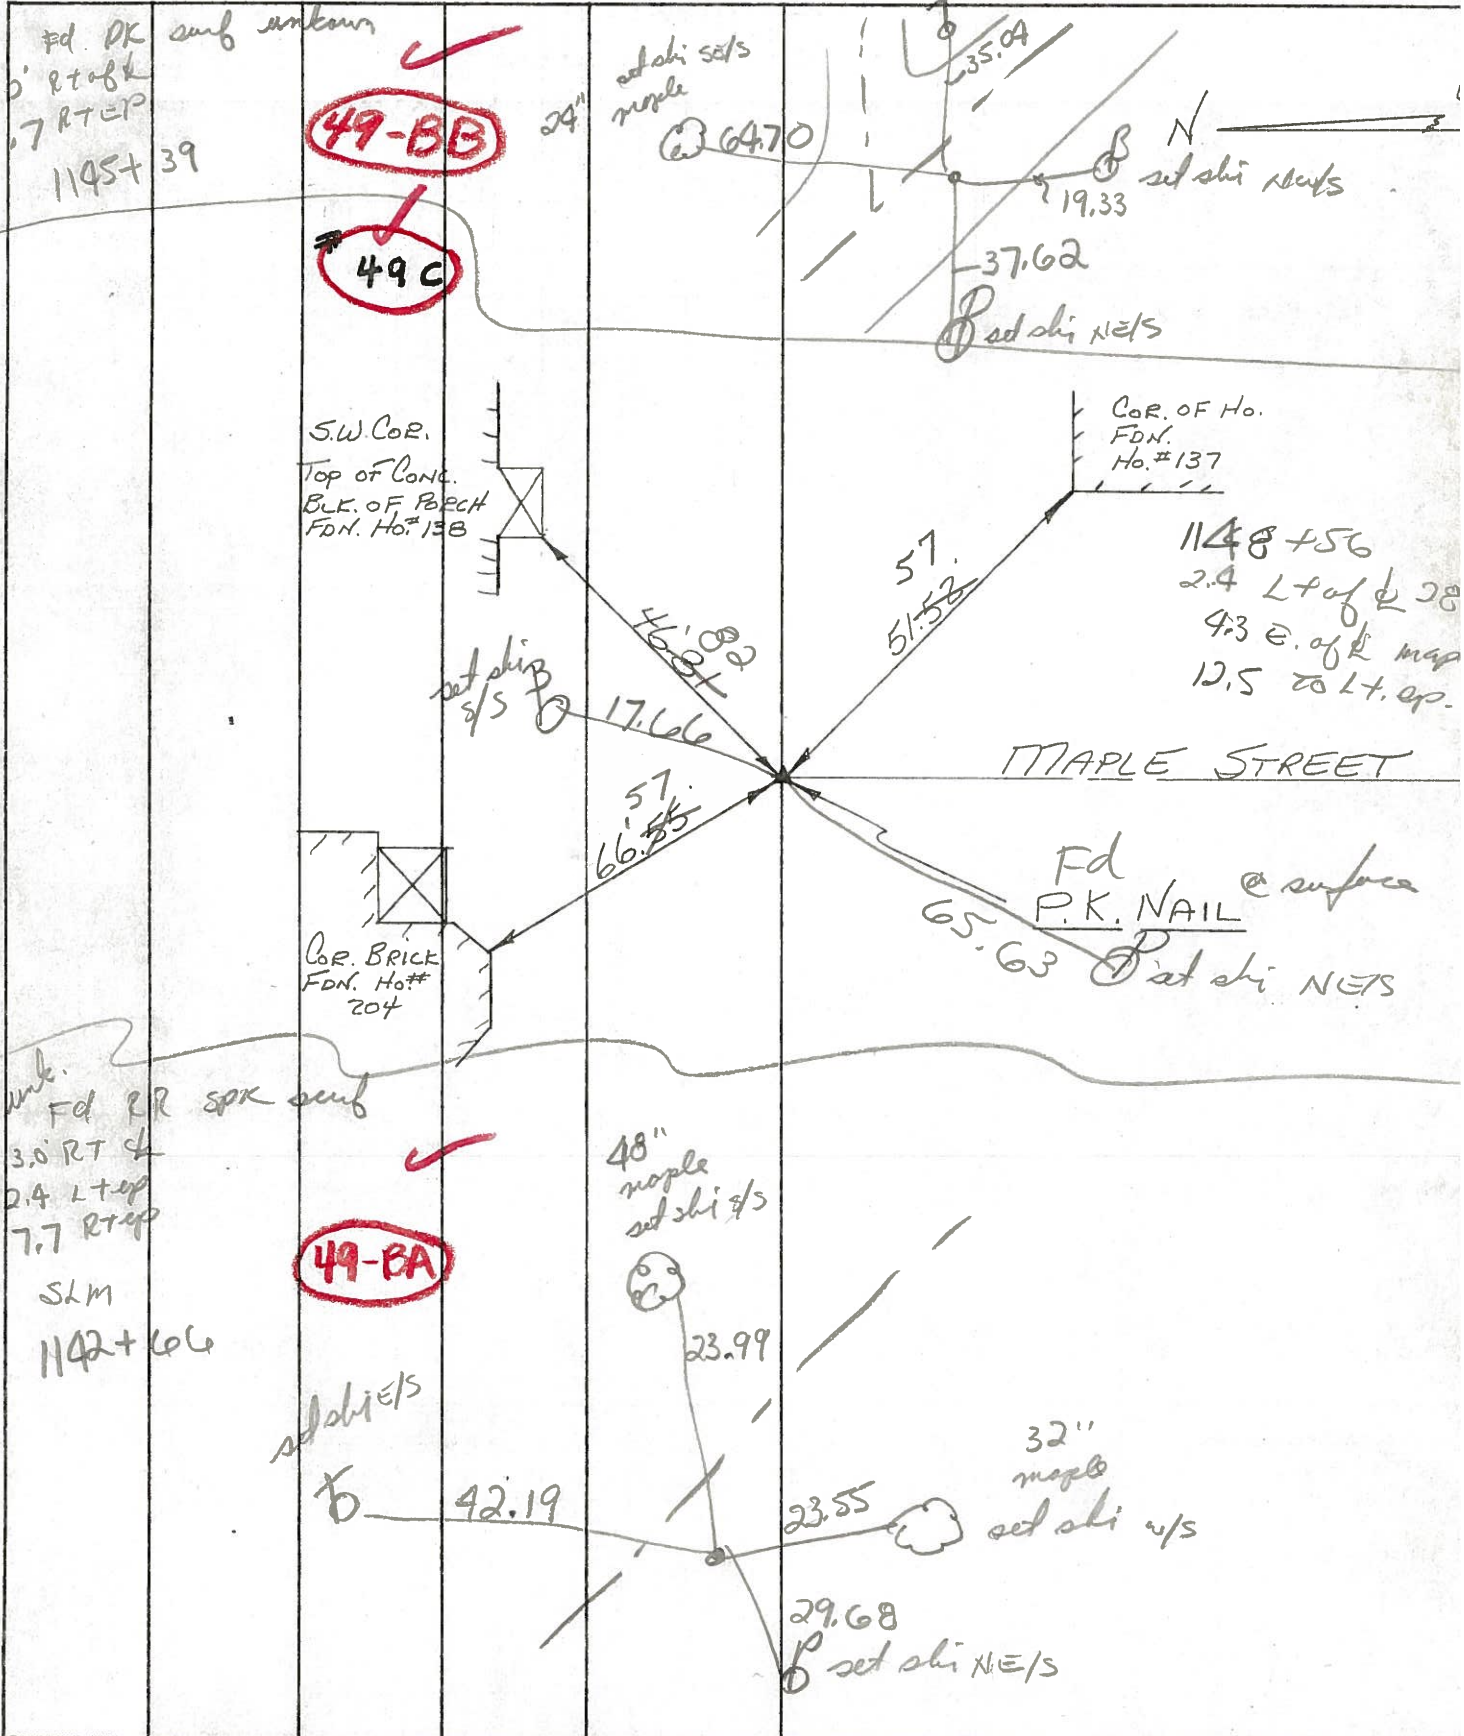 Fd. PK surf unkown
0' Rt of ℄
.7 RT EP
1145+39
49-BB
49C
24"
set shi SE/S
maple
64.70
35.04
N
set shi NW/S
19.33
37.62
set shi NE/S
S.W. COR.
TOP OF CONC.
BLK. OF PORCH
FDN. HO.#138
COR. OF HO.
FDN.
HO.#137
1148+56
2.4 Lt of ℄ 28
4.3 E. of ℄ map
12.5 to Lt. ep.
57.
51.52
46.'82
81
set shi
S/S
17.66
MAPLE STREET
57.
66.'55
Fd
P.K. NAIL @ surface
65.63
set shi NE/S
COR. BRICK
FDN. HO.#
204
unk.
Fd RR spk surf
3.0 RT ℄
2.4 Lt ep
7.7 Rt ep
SLM
1142+66
49-BA
48"
maple
set shi S/S
23.99
set shi E/S
42.19
32"
maple
23.55
set shi W/S
29.68
set shi NE/S